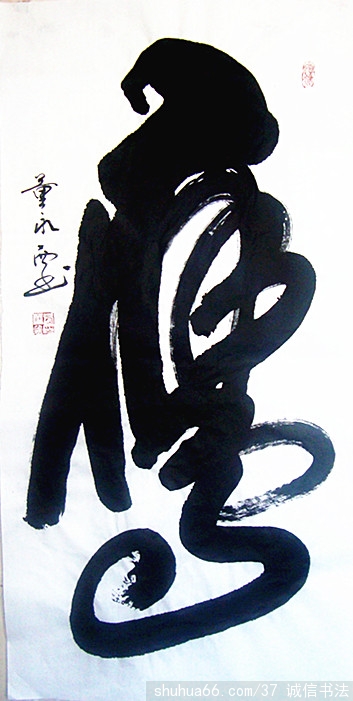 鷹
董永西书
shuhua66.com/37 诚信书法